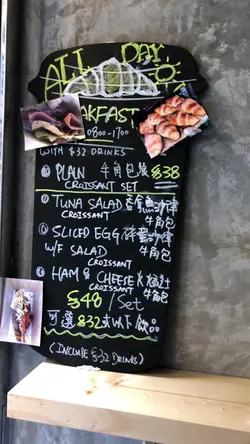 ALL DAY
AKFAST
0800-1700
WITH $32 DRINKS
PLAIN 牛角包 $38
CROISSANT SET
TUNA SALAD 吞拿魚沙律
CROISSANT 牛角包
SLICED EGG 沙律
W/F SALAD 牛角包
CROISSANT
HAM & CHEESE
CROISSANT 牛角包
$48 /Set
可選$32或以下飲
(INCLUDE $32 DRINKS)